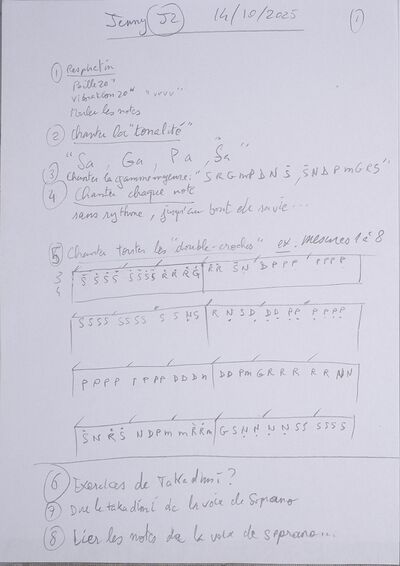 Jenny J2 14/10/2025 ①
① Respiration
Paille 20"
Vibration 20" "vvvv"
Monter les notes
② Chanter la "tonalité"
"Sa, Ga, Pa, Ṡa"
③ Chanter la gamme moyenne: "S R G m P D N Ṡ, Ṡ N D P m G R S"
④ Chanter chaque note
sans rythme, jusqu'au bout de sa vie...
⑤ Chanter toutes les "double-croches" ex. mesures 1 à 8
3 Ṡ Ṡ Ṡ Ṡ Ṡ Ṡ Ṡ Ṡ Ṙ Ṙ Ṙ Ġ Ṙ Ṙ Ṡ N D P P P P P P P
4
S S S S S S S S S S Ṇ S R Ṇ S D D D P P P P P P
P P P P P P P P D D D n D D P m G R R R R R N N
Ṡ N Ṙ Ṡ N D P m m Ṙ Ṙ m G S Ṇ Ṇ Ṇ Ṇ S S S S S S
⑥ Exercices de Takadimi?
⑦ Dire le takadimi de la voix de Soprano
⑧ Lier les notes de la voix de soprano...